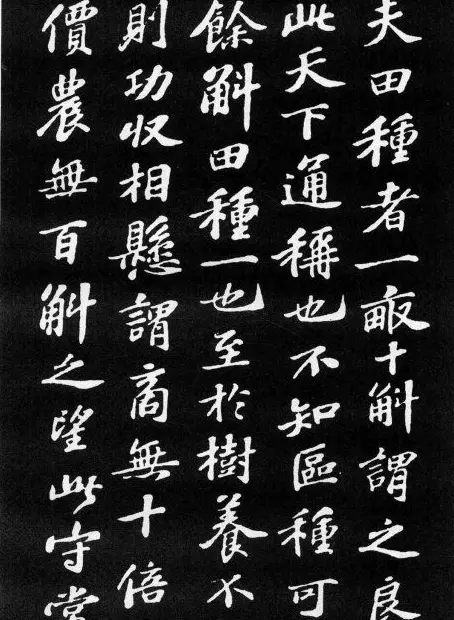 夫田種者一畝十斛謂之良
此天下通稱也不知區種可
餘斛田種一也至於樹養不
則功收相懸謂商無十倍
價農無百斛之望此守常